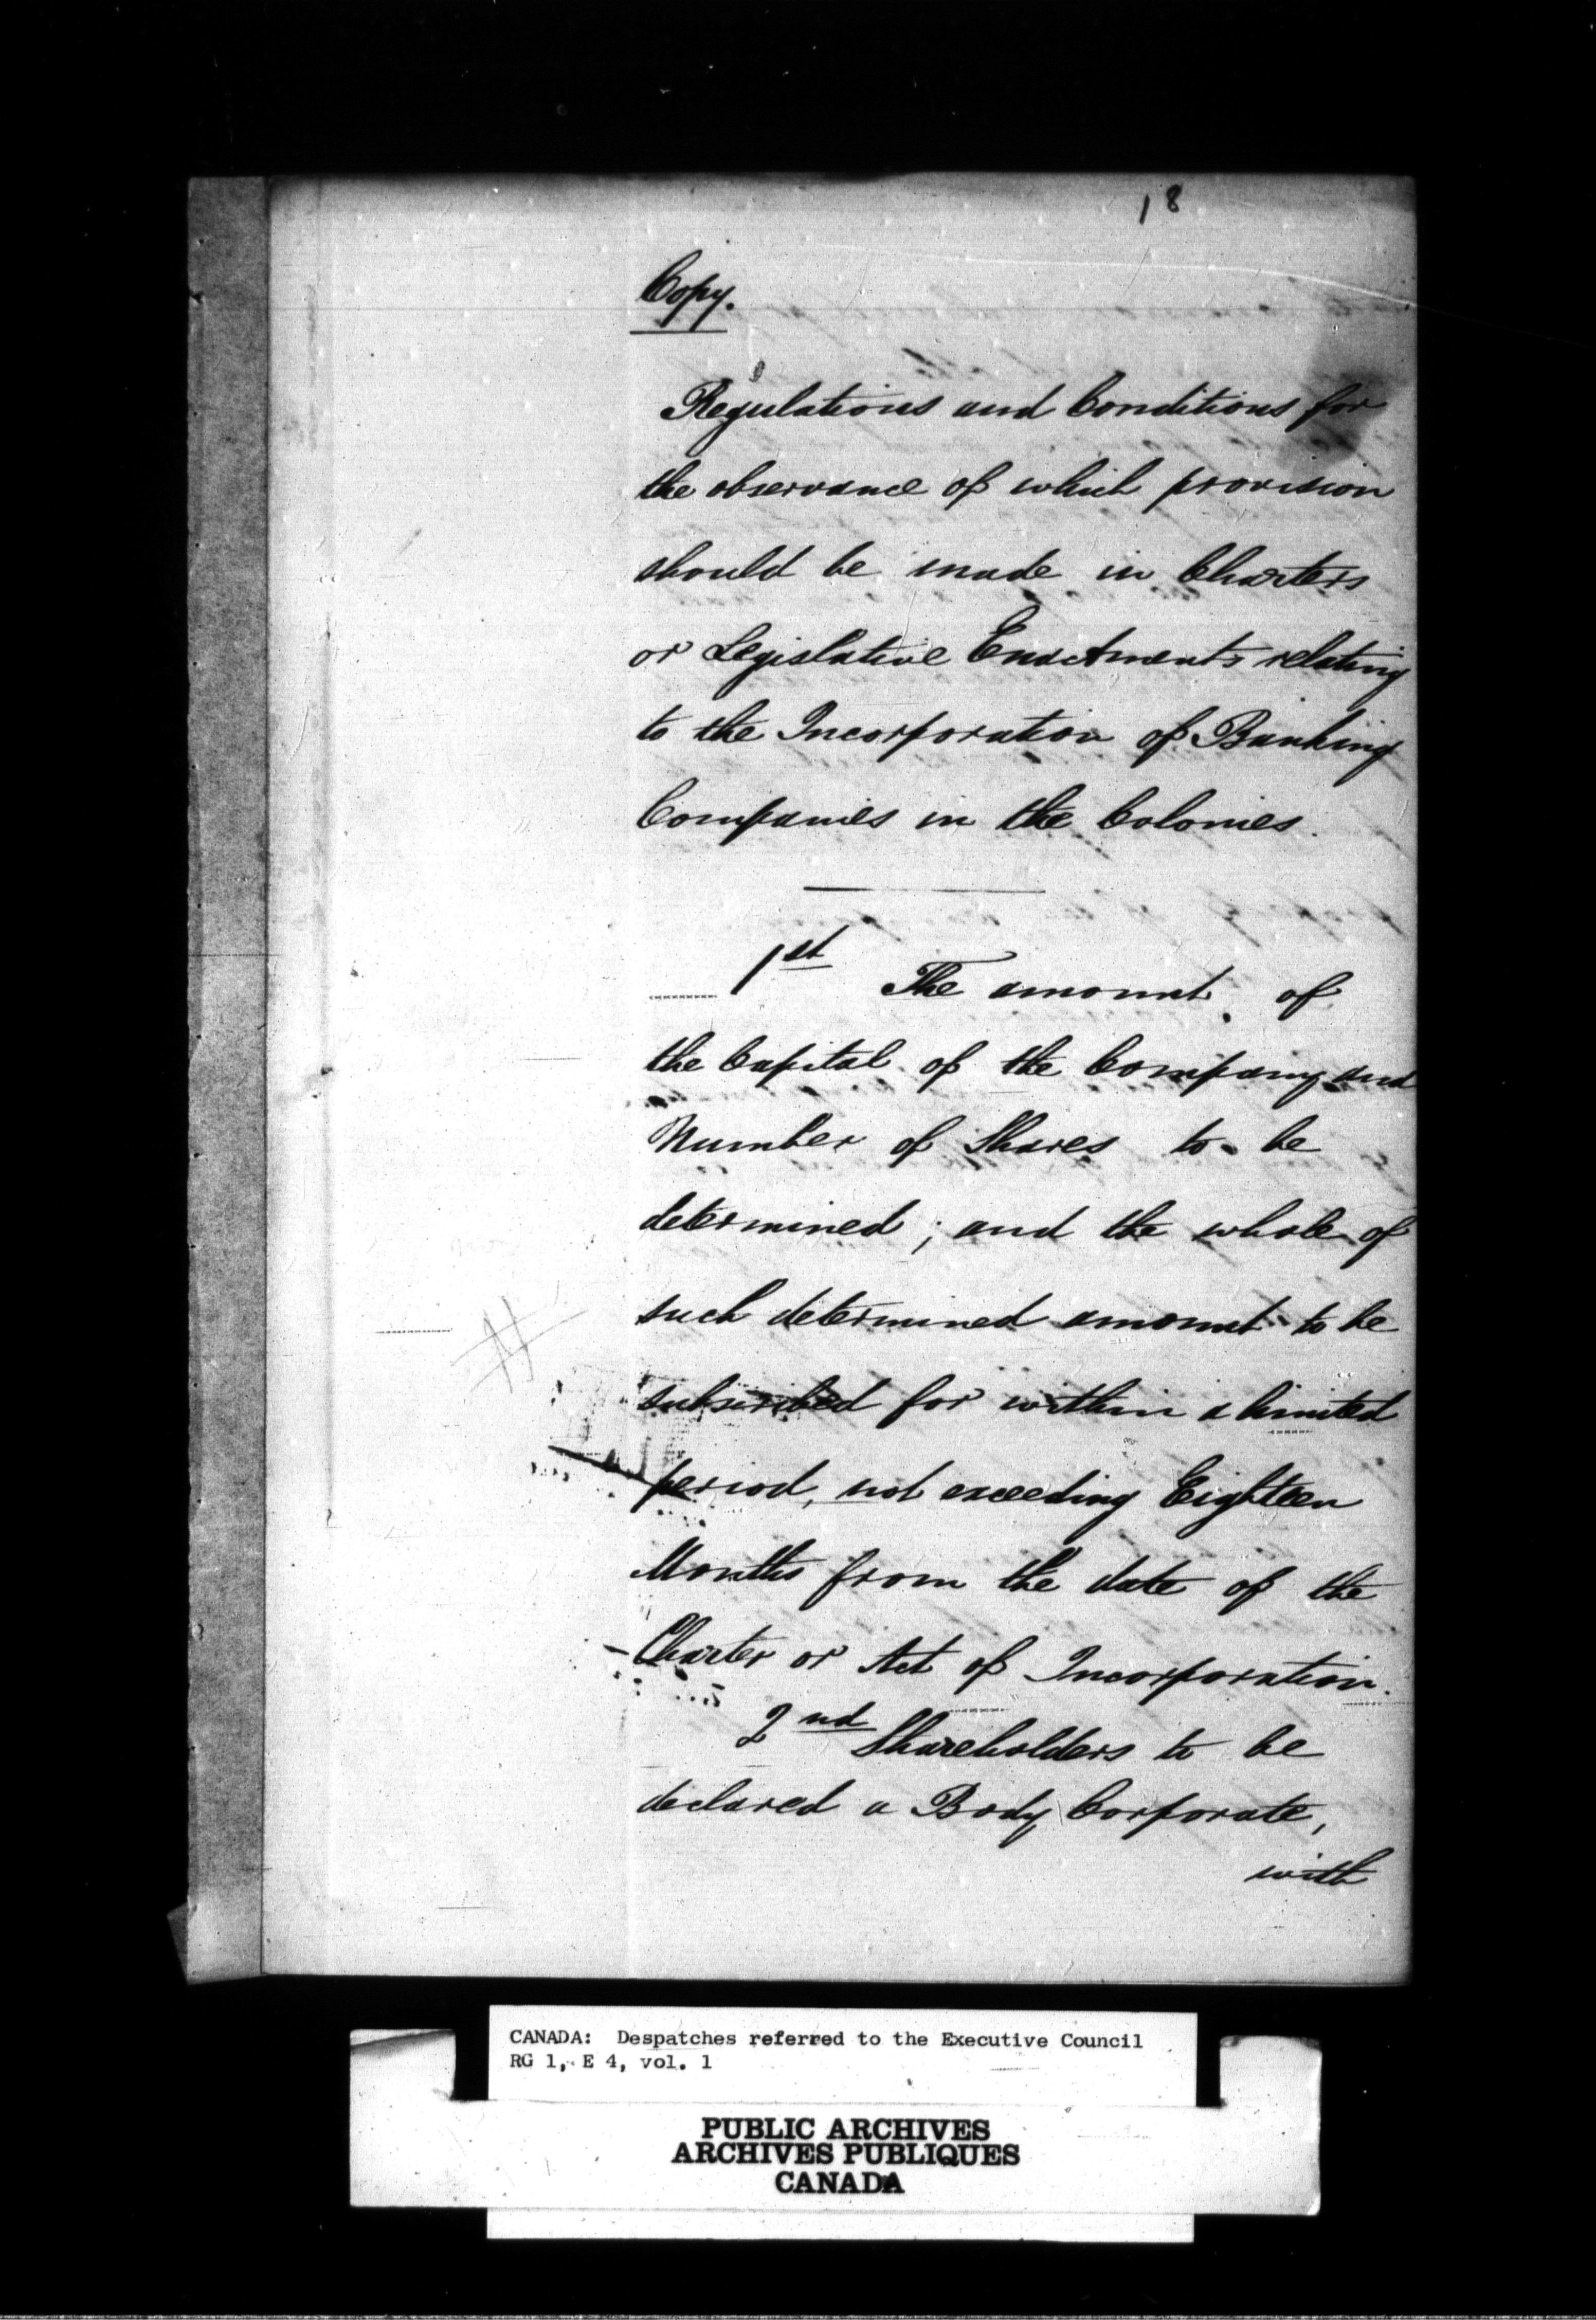 18
Copy.
Regulations and Conditions for
the observance of which provision
should be made in Charters
or Legislative Enactments relating
to the Incorporation of Banking
Companies in the Colonies.
1st The amount of
the Capital of the Company and
Number of Shares to be
determined; and the whole of
such determined amount to be
subscribed for within a limited
period, not exceeding Eighteen
Months from the date of the
Charter or Act of Incorporation.
2nd Shareholders to be
declared a Body Corporate,
with
CANADA: Despatches referred to the Executive Council
RG 1, E 4, vol. 1
PUBLIC ARCHIVES
ARCHIVES PUBLIQUES
CANADA